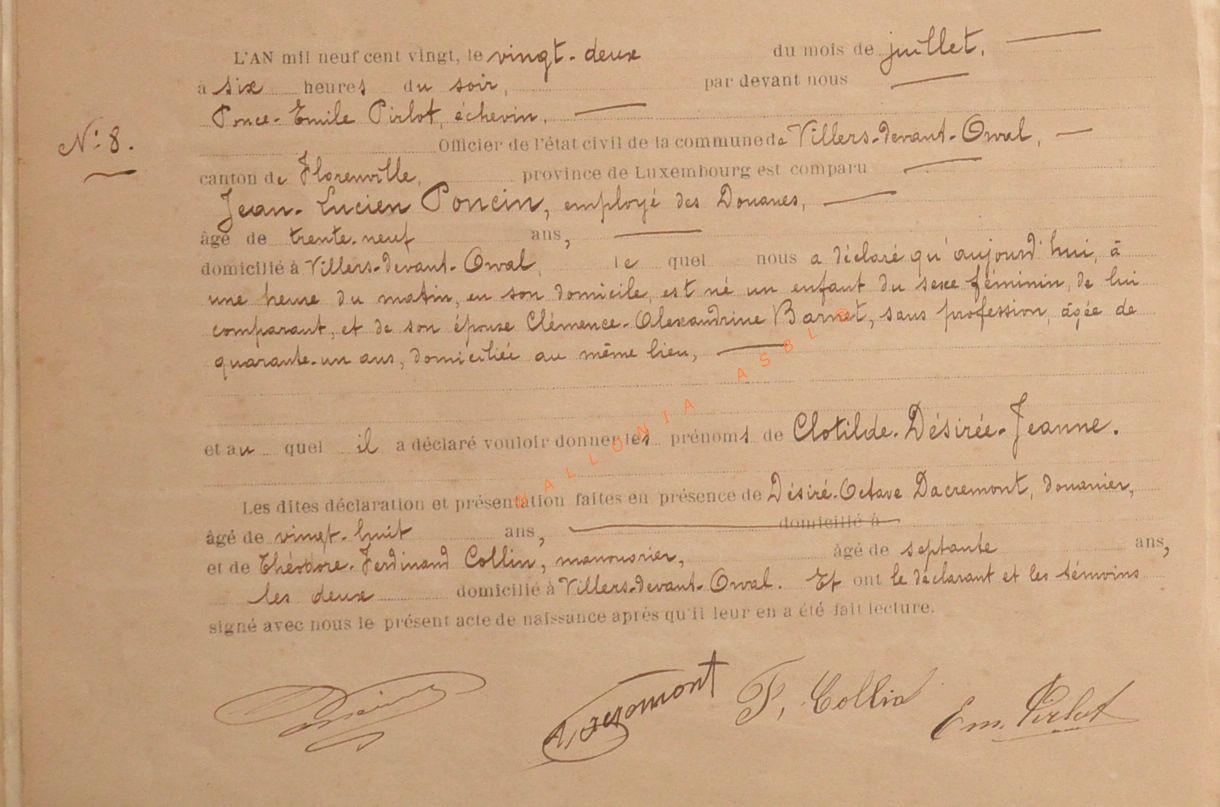 L'AN mil neuf cent vingt, le vingt-deux du mois de juillet,
à six heures du soir, par devant nous
Ponce-Emile Pirlot, échevin,
N: 8.
Officier de l'état civil de la commune de Villers-devant-Orval,
canton de Florenville, province de Luxembourg est comparu
Jean-Lucien Poncin, employé des Douanes,
âgé de trente-neuf ans,
domicilié à Villers-devant-Orval, le quel nous a déclaré qu'aujourd'hui, à
une heure du matin, en son domicile, est né un enfant du sexe féminin, de lui
comparant, et de son épouse Clémence-Alexandrine Barnet, sans profession, âgée de
quarante-un ans, domiciliée au même lieu,
et au quel il a déclaré vouloir donner les prénoms de Clotilde-Désirée-Jeanne.
Les dites déclaration et présentation faites en présence de Désiré-Octave Dacremont, douanier,
âgé de vingt-huit ans, domicilié à
et de Théodore-Ferdinand Collin, manouvrier, âgé de septante ans,
les deux domicilié à Villers-devant-Orval. Et ont le déclarant et les témoins
signé avec nous le présent acte de naissance après qu'il leur en a été fait lecture.
F. Collin Em. Pirlot
WALLONIA ASBL ©